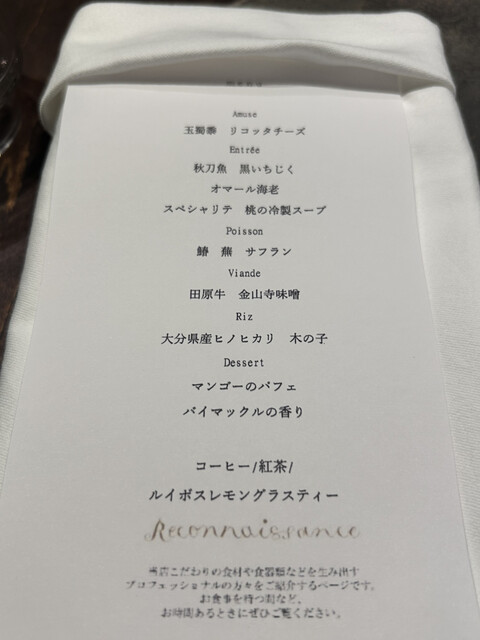 Amuse
玉蜀黍　リコッタチーズ
Entrée
秋刀魚　黒いちじく
オマール海老
スペシャリテ　桃の冷製スープ
Poisson
鰆　蕪　サフラン
Viande
田原牛　金山寺味噌
Riz
大分県産ヒノヒカリ　木の子
Dessert
マンゴーのパフェ
バイマックルの香り
コーヒー/紅茶/
ルイボスレモングラスティー
Reconnaissance
当店こだわりの食材や食器類などを生み出す
プロフェッショナルの方々をご紹介するページです。
お食事を待つ間など、
お時間あるときにぜひご覧ください。